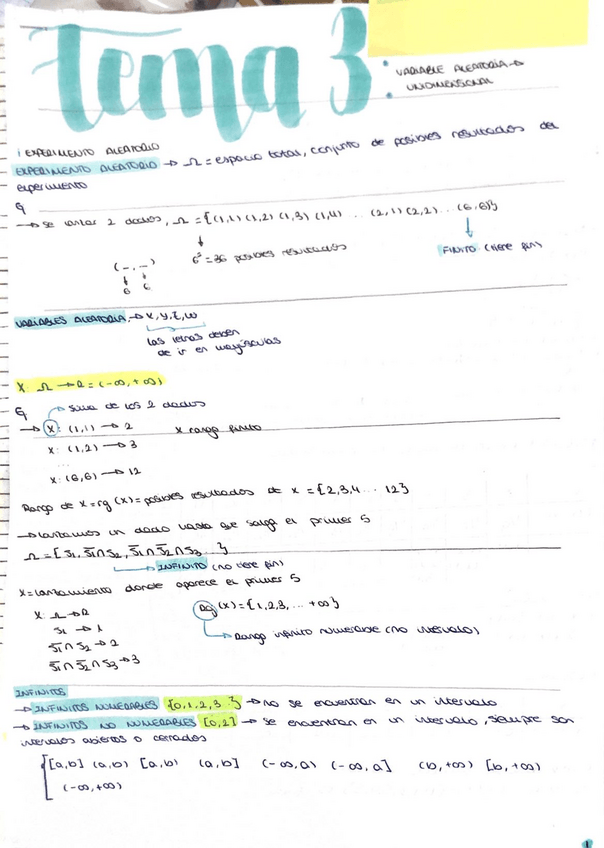 Tema 3:
VARIABLE ALEATORIA →
UNIDIMENSIONAL
EXPERIMENTO ALEATORIO
EXPERIMENTO ALEATORIO → Ω = espacio total, conjunto de posibles resultados del
experimento
Ej
→ Se lanzar 2 dados, Ω = {(1,1) (1,2) (1,3) (1,4) ... (2,1) (2,2) ... (6,6)}
6² = 36 posibles resultados
FINITO (tiene fin)
(-,-)
6 6
VARIABLES ALEATORIA → X, Y, Z, W
las letras deben
de ir en mayúsculas
X: Ω → R = (-∞, +∞)
Ej
→ suma de los 2 dados
→ X: (1,1) → 2 X rango finito
X: (1,2) → 3
...
X: (6,6) → 12
Rango de X = rg (X) = posibles resultados de X = {2,3,4 ... 12}
→ Lanzamos un dado hasta que salga el primer 5
Ω = {S1, S̅1∩S2, S̅1∩S̅2∩S3 ...}
→ INFINITO (no tiene fin)
X = lanzamiento donde aparece el primer 5
X: Ω → R
S1 → 1
S̅1∩S2 → 2
S̅1∩S̅2∩S3 → 3
Rg (X) = {1,2,3, ... +∞}
→ Rango infinito numerable (no intervalo)
INFINITOS
→ INFINITOS NUMERABLES {0,1,2,3..} → no se encuentran en un intervalo
→ INFINITOS NO NUMERABLES [0,2] → se encuentran en un intervalo, siempre son
intervalos abiertos o cerrados
[a,b] (a,b) [a,b) (a,b] (-∞,a) (-∞,a] (b,+∞) [b,+∞)
(-∞,+∞)
1